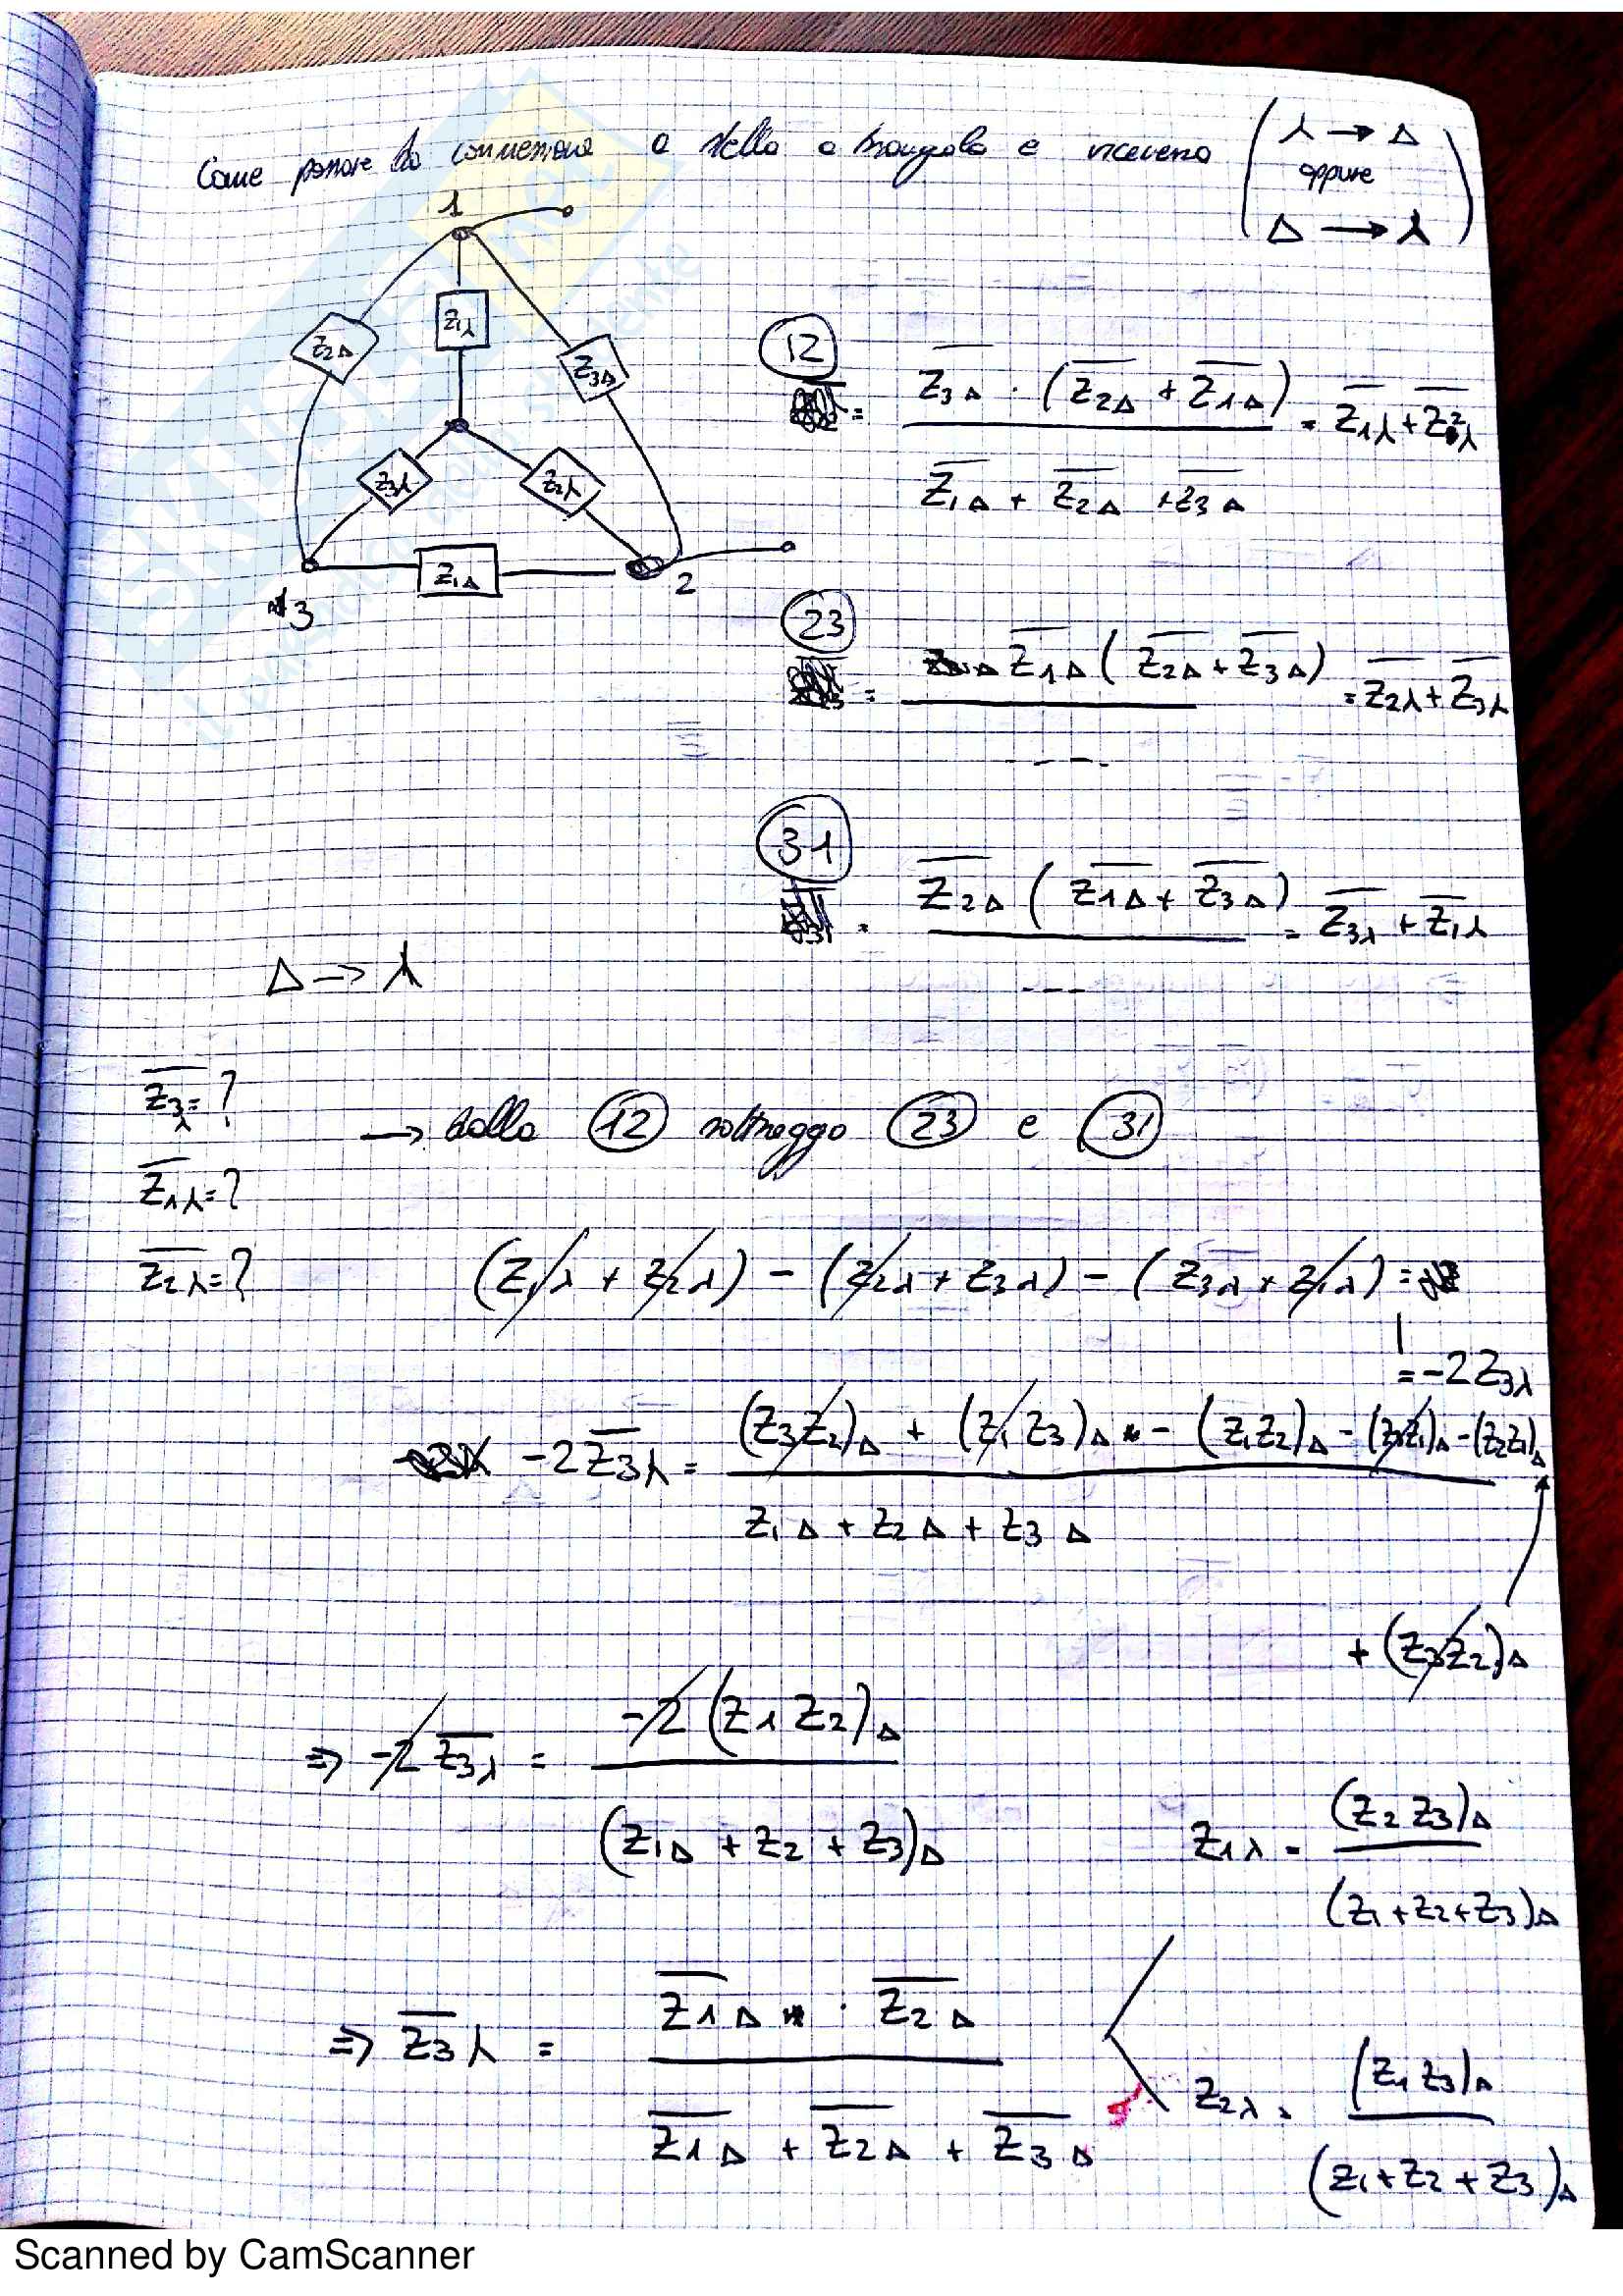 Come passare da connessione a stella a triangolo e viceversa (⅄ → Δ
oppure
Δ → ⅄)
1
Z2Δ
Z1⅄
Z3Δ
Z3⅄
Z2⅄
Z1Δ
3
2
(12)
= Z̅3Δ · (Z̅2Δ + Z̅1Δ) / (Z̅1Δ + Z̅2Δ + Z̅3Δ) = Z̅1⅄ + Z̅2⅄
(23)
= Z̅1Δ (Z̅2Δ + Z̅3Δ) / --- = Z̅2⅄ + Z̅3⅄
(31)
= Z̅2Δ (Z̅1Δ + Z̅3Δ) / --- = Z̅3⅄ + Z̅1⅄
Δ -> ⅄
Z̅3⅄ = ?
Z̅1⅄ = ?
Z̅2⅄ = ?
→ dalla (12) sottraggo (23) e (31)
(Z1⅄ + Z2⅄) - (Z2⅄ + Z3⅄) - (Z3⅄ + Z1⅄) =
= -2Z3⅄
-2Z̅3⅄ = (Z3Z2)Δ + (Z1Z3)Δ - (Z1Z2)Δ - (Z3Z1)Δ - (Z2Z1)Δ / Z1Δ + Z2Δ + Z3Δ
+ (Z3Z2)Δ
⇒ -2Z̅3⅄ = -2(Z1Z2)Δ / (Z1Δ + Z2 + Z3)Δ
Z1⅄ = (Z2Z3)Δ / (Z1+Z2+Z3)Δ
⇒ Z̅3⅄ = Z̅1Δ · Z̅2Δ / Z̅1Δ + Z̅2Δ + Z̅3Δ
Z2⅄ = (Z1Z3)Δ / (Z1+Z2+Z3)Δ
Scanned by CamScanner